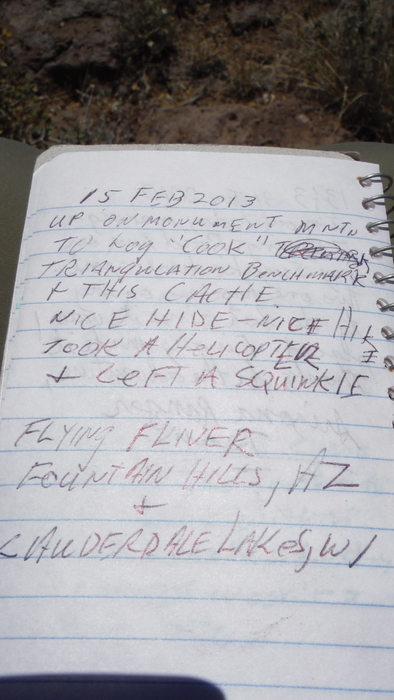 15 FEB 2013
UP ON MONUMENT MNTN
TO LOG "COOK"
TRIANGULATION BENCHMARK
+ THIS CACHE.
NICE HIDE - NICE
TOOK A HELICOPTER
+ LEFT A SQUINKIE
FLYING FLIVER
FOUNTAIN HILLS, AZ
+
LAUDERDALE LAKES, WI